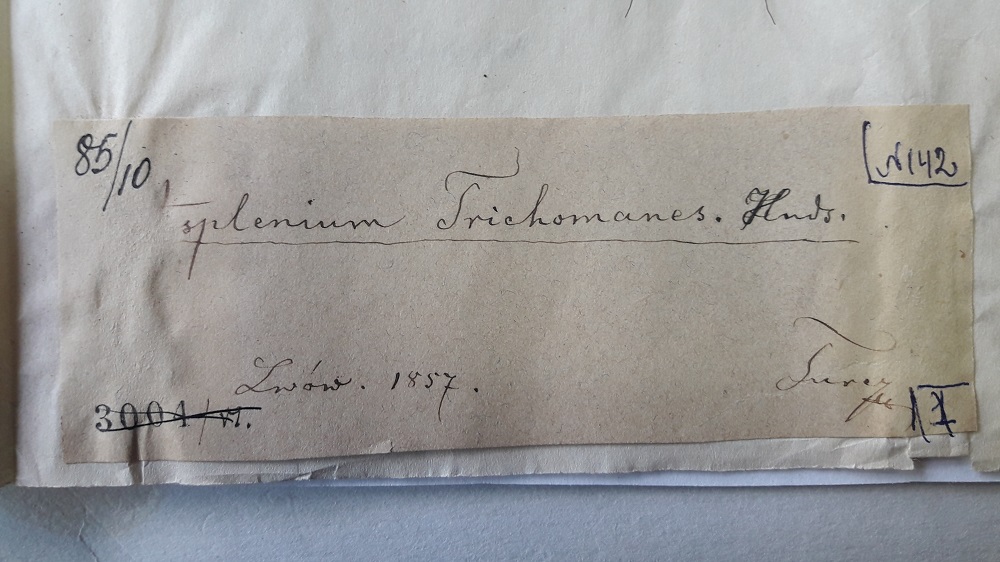 85/10
№ 142
Asplenium Trichomanes. Huds.
Lwów. 1857.
3004/VI.
1